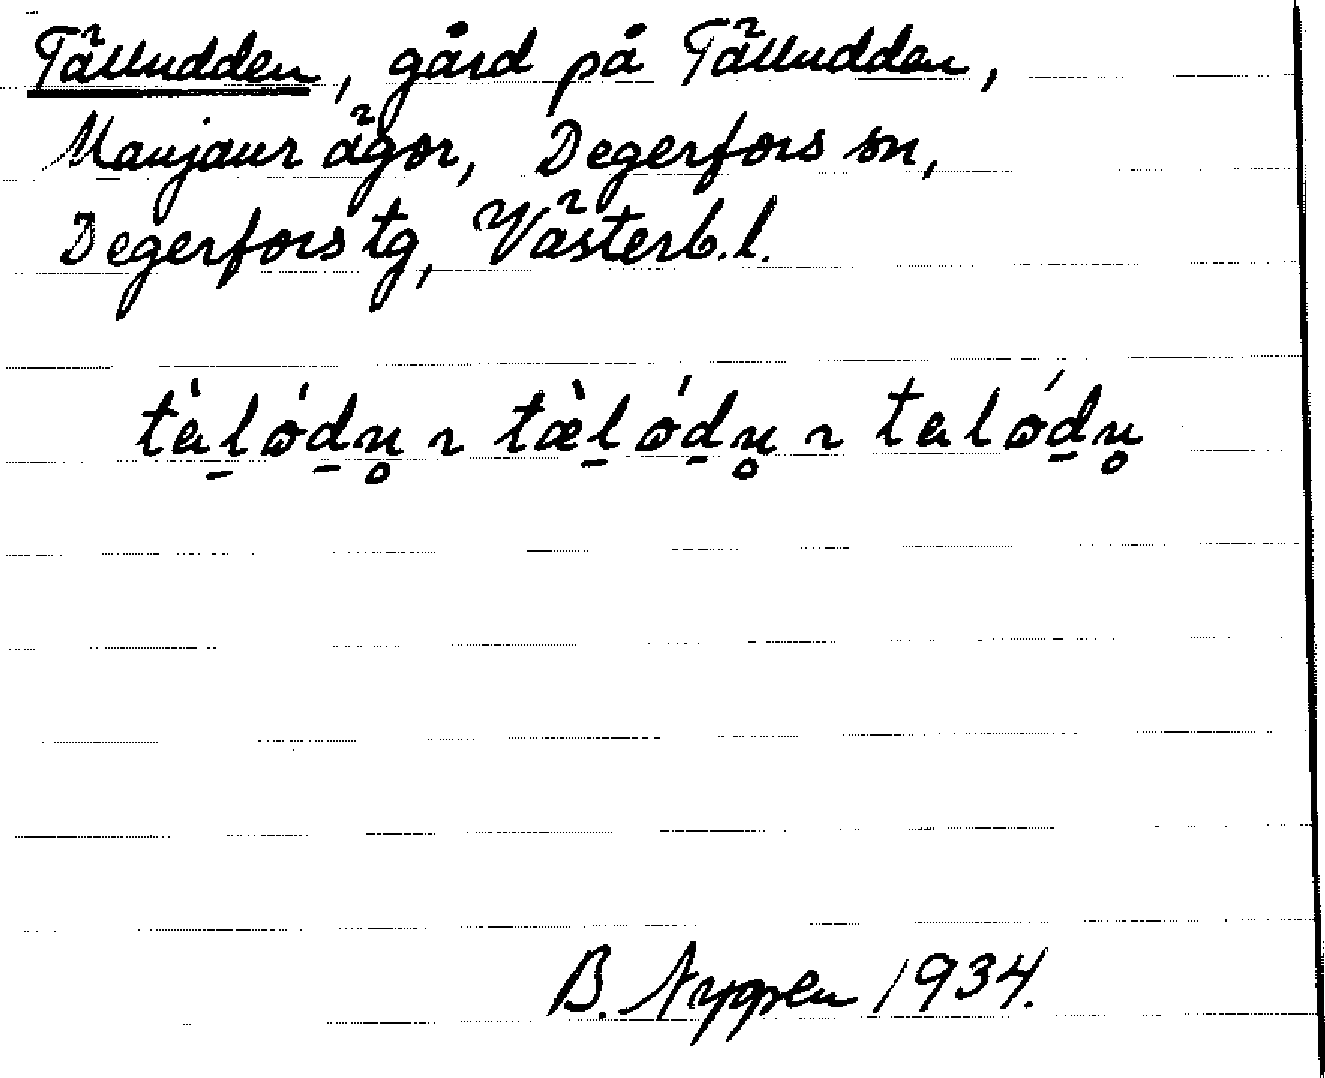 Tälludden, gård på Tälludden,
Manjaur ägor, Degerfors sn,
Degerfors tg, Västerb.l.
tàl̠ǿd̠n̥ ~ tæ̀l̠ǿd̠n̥ ~ talǿd̠n̥
B. Nygren 1934.